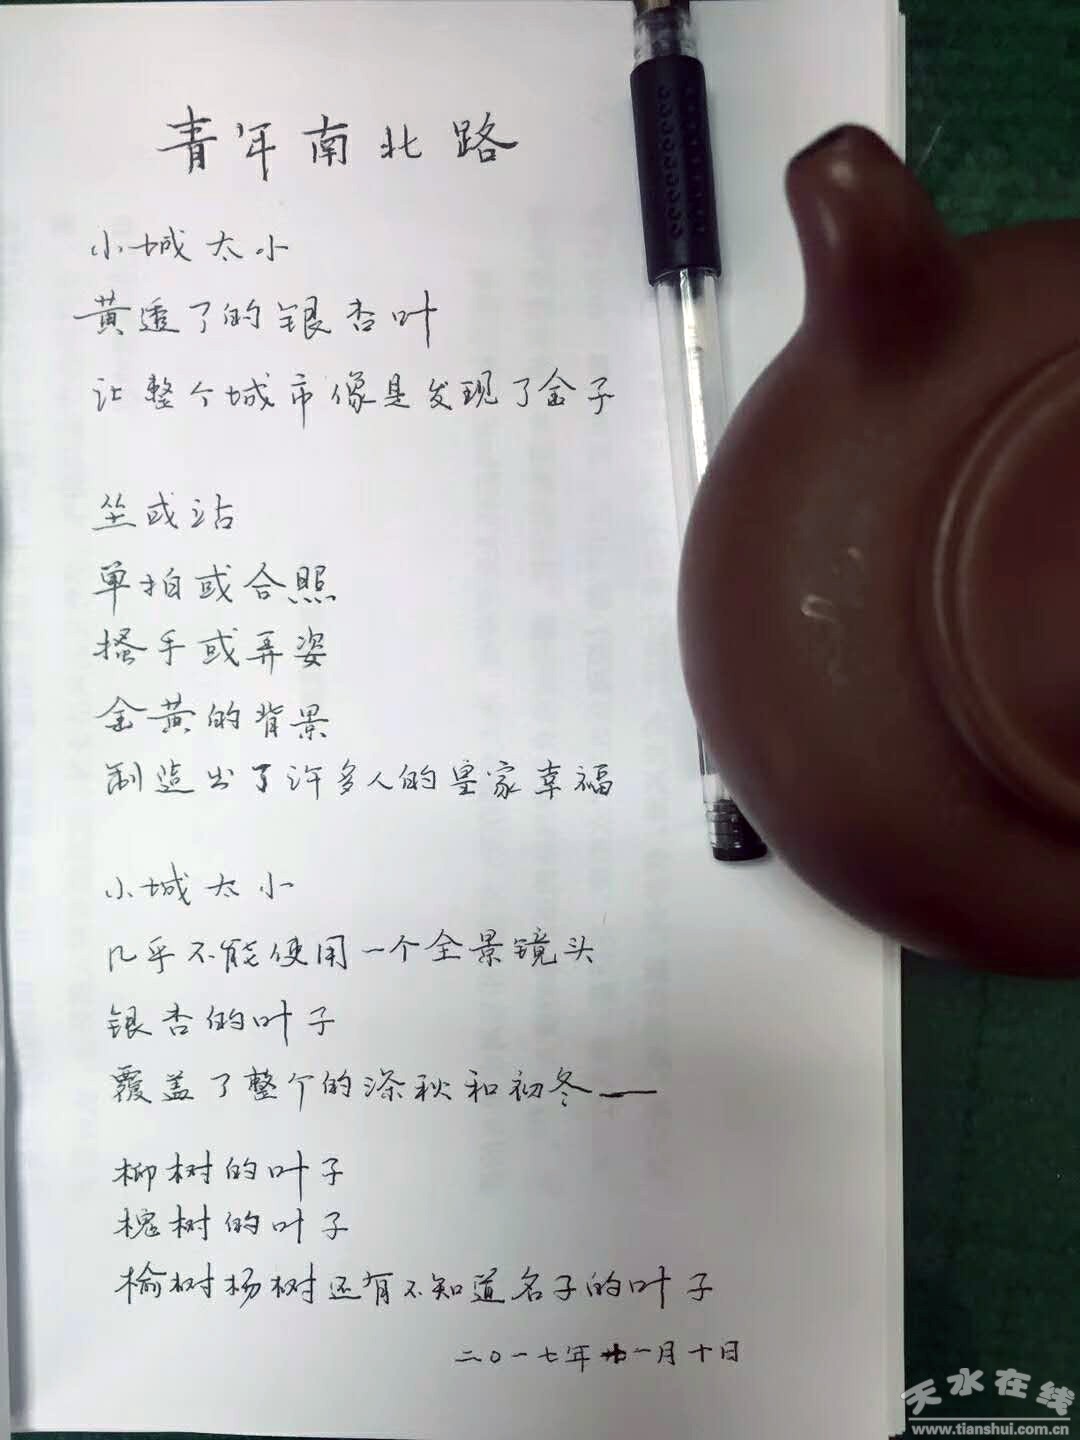 青年南北路
小城太小
黄透了的银杏叶
让整个城市像是发现了金子
坐或站
单拍或合照
搔手或弄姿
金黄的背景
制造出了许多人的皇家幸福
小城太小
几乎不能使用一个全景镜头
银杏的叶子
覆盖了整个的深秋和初冬——
柳树的叶子
槐树的叶子
榆树杨树还有不知道名子的叶子
二〇一七年十一月十日
天水在线
www.tianshui.com.cn